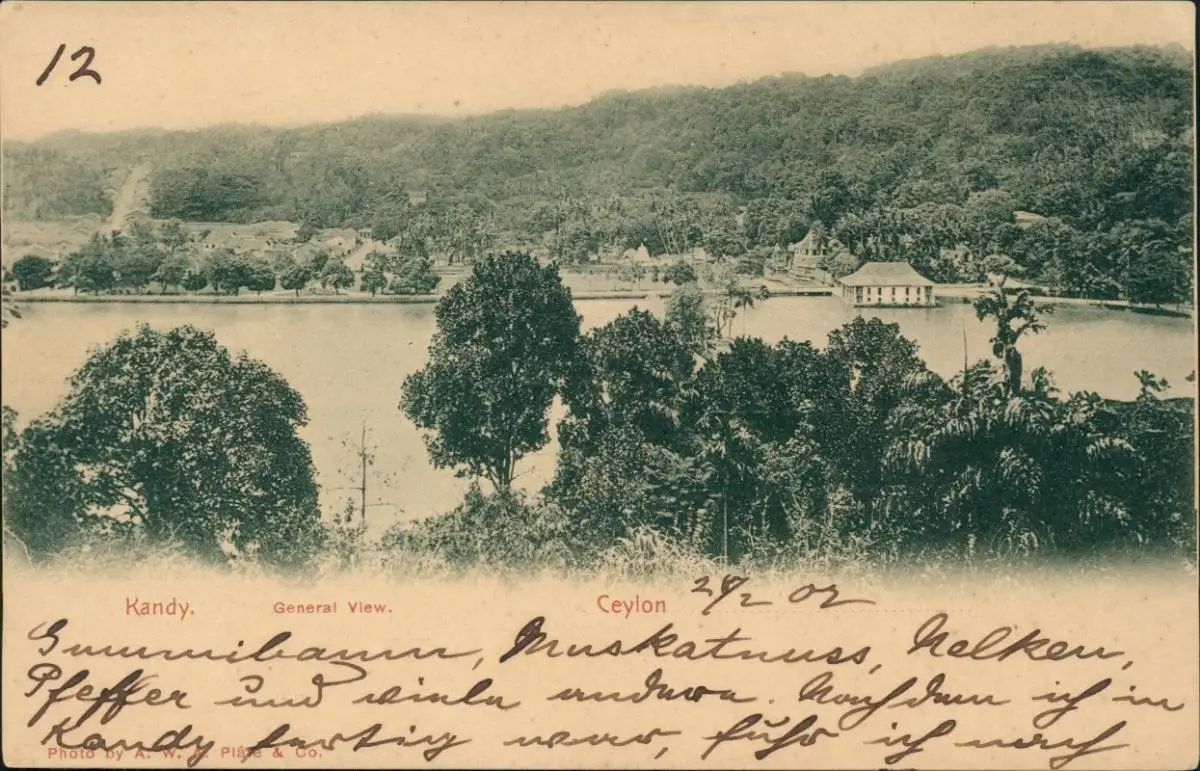 12
Kandy. General View. Ceylon 24/2 02
Gummibaum, Muskatnuss, Nelken,
Pfeffer und viele andere. Nachdem ich in
Kandy fertig war, fuhr ich nach
Photo by A. W. A. Plâte & Co.